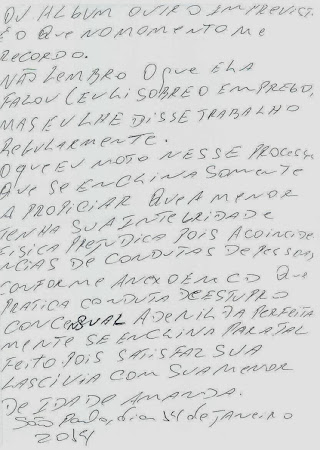 OU ALBUM OUTRO IMPREVIST
É O QUE NO MOMENTO ME
RECORDO.
NÃO LEMBRO O QUE ELA
FALOU SOBRE O EMPREGO,
MAS EU LHE DISSE TRABALHO
REGULARMENTE.
O QUE EU NOTO NESSE PROCESSO
QUE SE ENCLINA SOMENTE
A PROPICIAR QUE A MENOR
TENHA SUA INTEGRIDADE
FISICA PREJUDICA POIS A COINCIDE
NCIAS DE CONDUTAS DE PESSOAS,
CONFORME ANEXO EM CD QUE
PRATICA CONDUTA DE ESTUPRO
CONCENSUAL A DENILDA PERFEITA
MENTE SE ENCLINA PARA TAL
FEITO POIS SATISFAZ SUA
LASCIVIA COM SUA MENOR
DE IDADE AMANDA.
São Paulo, dia 14 de JANEIRO
2014